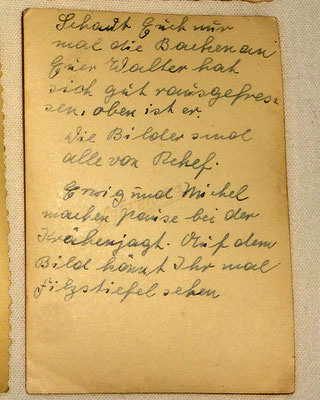 Schaut Euch nur
mal die Backen an
Euer Walter hat
sich gut rausgefres-
sen, oben ist er.
Die Bilder sind
alle von
und Michel
machen Pause bei der
Krähenjagt. Auf dem
Bild könnt Ihr mal
Filzstiefel sehen